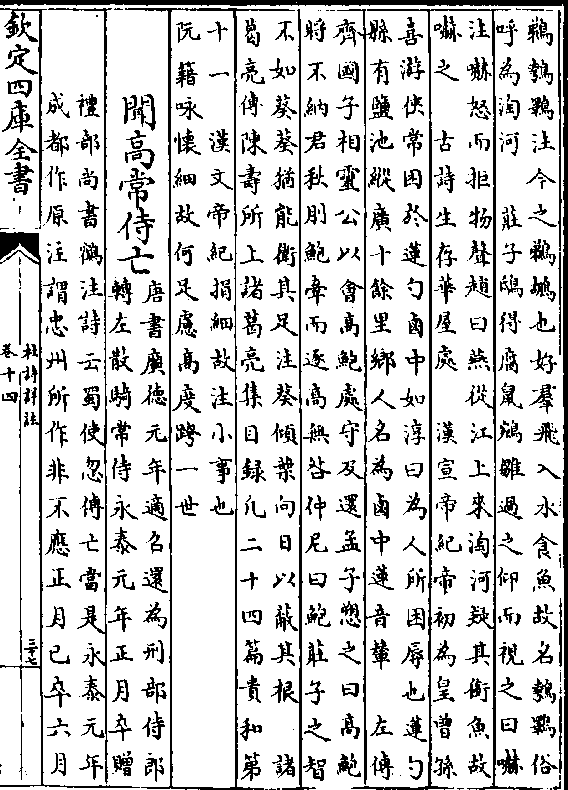 鵜鶘鸅注今之鵜鶘也好羣飛入水食魚故名鶘鸅俗
呼為淘河　莊子鴟得腐鼠鵷雛過之仰而視之曰嚇
注嚇怒而拒物聲趙曰燕從江上來淘河疑其銜魚故
嚇之　古詩生存華屋處　漢宣帝紀帝初為皇曾孫
喜游俠常困於蓮勺鹵中如淳曰為人所困辱也蓮勺
縣有鹽池縱廣十餘里鄉人名為鹵中蓮音輦　左傳
齊國子相靈公以會高鮑處守及還孟子愬之曰高鮑
將不納君秋刖鮑牽而逐高無咎仲尼曰鮑莊子之智
不如葵葵猶能衛其足注葵傾葉向日以蔽其根　諸
葛亮傳陳壽所上諸葛亮集目録凡二十四篇貴和第
十一　漢文帝紀捐細故注小事也
阮籍咏懷細故何足慮高度跨一世
聞高常侍亡
唐書廣德元年適召還為刑部侍郎
轉左散騎常侍永泰元年正月卒贈
禮部尚書鶴注詩云蜀使忽傳亡當是永泰元年
成都作原注謂忠州所作非不應正月已卒六月
欽定四庫全書
杜詩詳註
卷十四
三十七